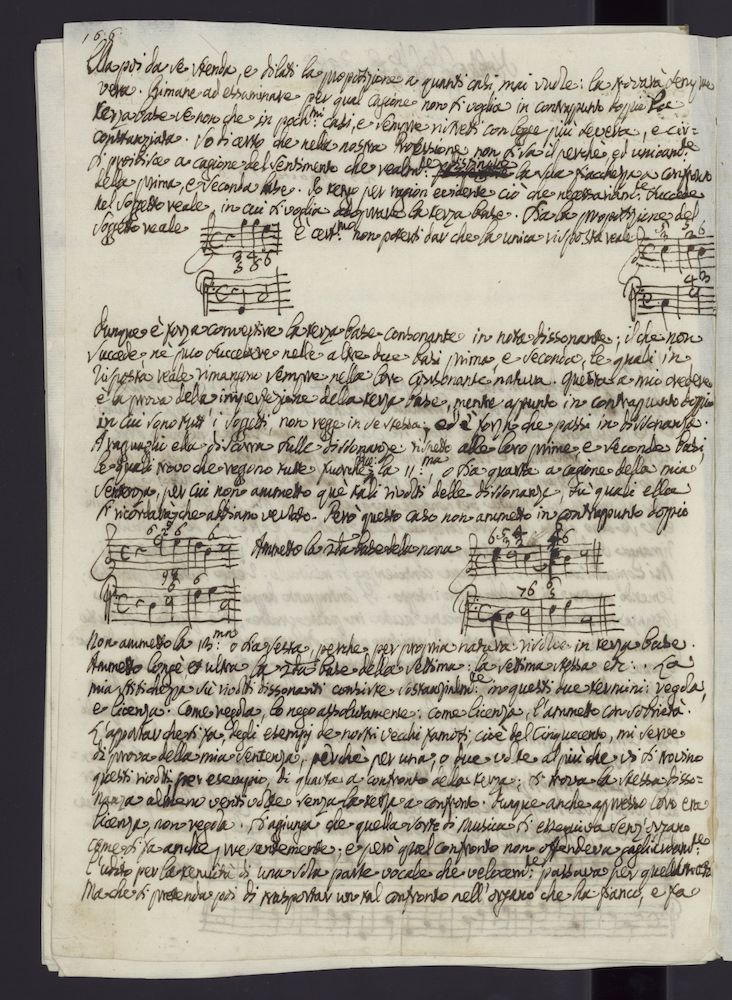 166
Ella poi da se stenda, e dilati la proposizione a quanti casi mai vuole: la troverà sempre
vera. Rimane ad essaminare per qual cagione non si voglia in contrappunto doppio la
terza base se non che in poch.mi casi, e sempre ristretti con legge più severa, e cir=
costanziata. So di certo che nella nostra versione non si va il perchè, ed unicam.te
si proibisce a cagione del sentimento che realm.te la sua fiacchezza a confronto
della prima, e seconda base. Io tengo per ragion evidente ciò che necessariam.te succede
nel soggetto reale, in cui si voglia adoprare la terza base. Sia la proposizione del
soggetto reale
è cert.mo non potersi dar che la unica risposta reale
Dunque è forza convertire la terza base consonante in nota dissonante; il che non
succede nè può succedere nelle altre due basi prima, e seconda, le quali in
risposta reale rimangono sempre nella loro consonante natura. Questa a mio credere
è la prova della imperfezione della terza base, mentre appunto in contrapunto doppio
in cui sono tutti i soggetti, non regge in se stessa, ed è forza che passa in dissonanza.
A ragguagli ella discorra sulle dissonanze rispetto alle loro prime, e seconde basi,
le quali trovo che reggono tutte fuorchè la 11.ma, o sia quarta a cagione della mia
sentenza, per cui non ammetto que' tali rivolti delle dissonanze, fu' quali ella
si ricorderà che abbiamo versato. Però questo caso non ammetto in contrappunto doppio
Ammetto la 2da base della nona
Non ammetto la 13.ma o sia sesta, perchè per propria natura risolve in terza base.
Ammetto longe et ultra la 2da base della settima: la settima stessa etc. La
mia stitichezza su' rivolti dissonanti consiste sostanzialm.te in questi due termini: regola,
e licenza. Come regola, lo nego assolutamente: come licenza, l'ammetto con sobrietà.
L'apportar che si fa, degli esempj de nostri vecchi famosi, cioè del Cinquecento, mi serve
di prova della mia sentenza, perchè per una, o due volte al più che vi si trovino
questi rivolti per esempio, di quarta a confronto della terza; si trova la stessa disso=
nanza almeno venti volte senza la terza a confronto. Dunque anche appresso loro era
licenza, non regola. Si aggiunga che quella sorte di Musica si essequiva senz'organo
come si fa anche presentemente; e però quel confronto non offendeva gagliardam.te
l'udito per la tenuità di una sola parte vocale che velocem.te passava per quell'
Ma che si pretenda poi di trasportar un tal confronto nell'organo che ha fianco, e fa